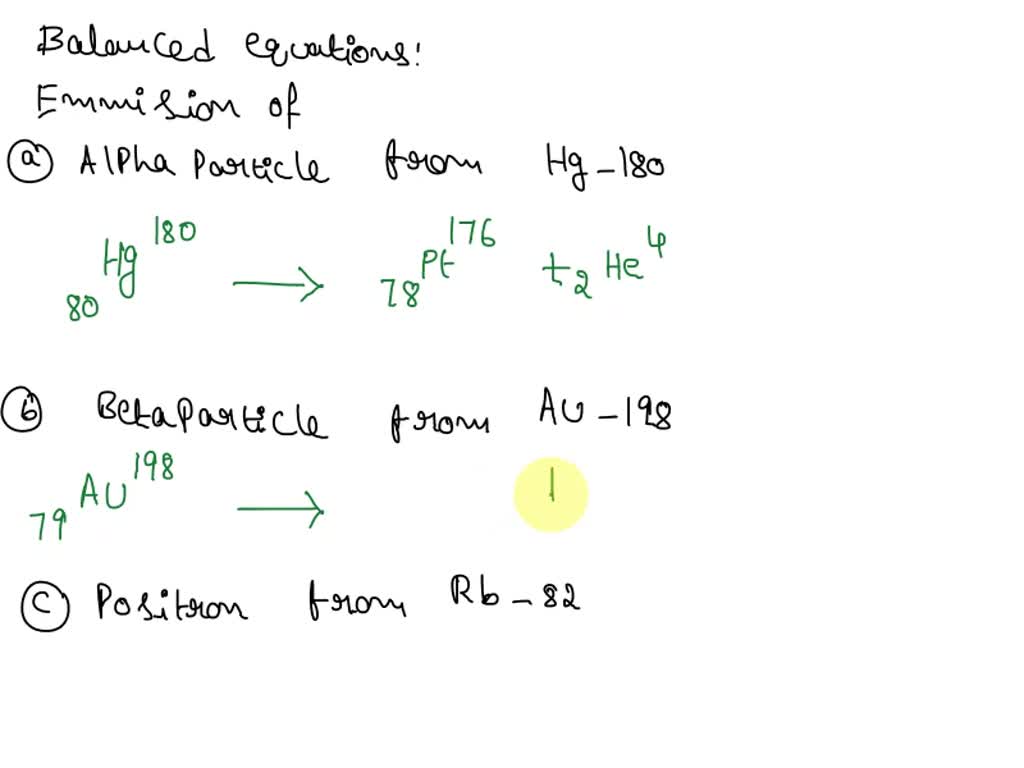 Balanced equations:
Emmision of
(a) Alpha Particle from Hg-180
80 Hg 180 → 78 Pt 176 + 2 He 4
(b) Beta Particle from AU-198
79 AU 198 →
(c) Positron from Rb-82